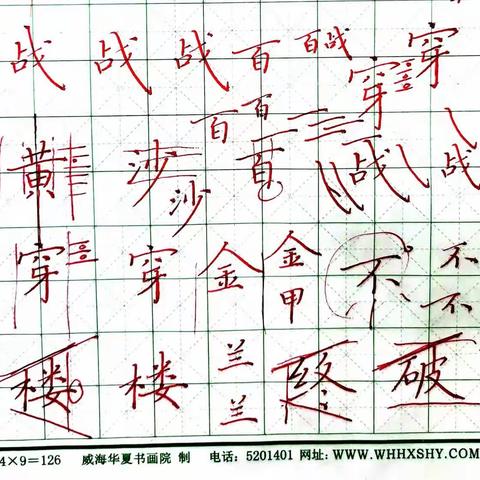 战 战 战 百 百战 穿 穿
百 百
黄 沙 沙 百 战 战
穿 穿 金 金 甲 不 不 不
楼 楼 兰 兰 终 破
4×9=126 威海华夏书画院 制 电话：5201401 网址：WWW.WHHXSHY.COM